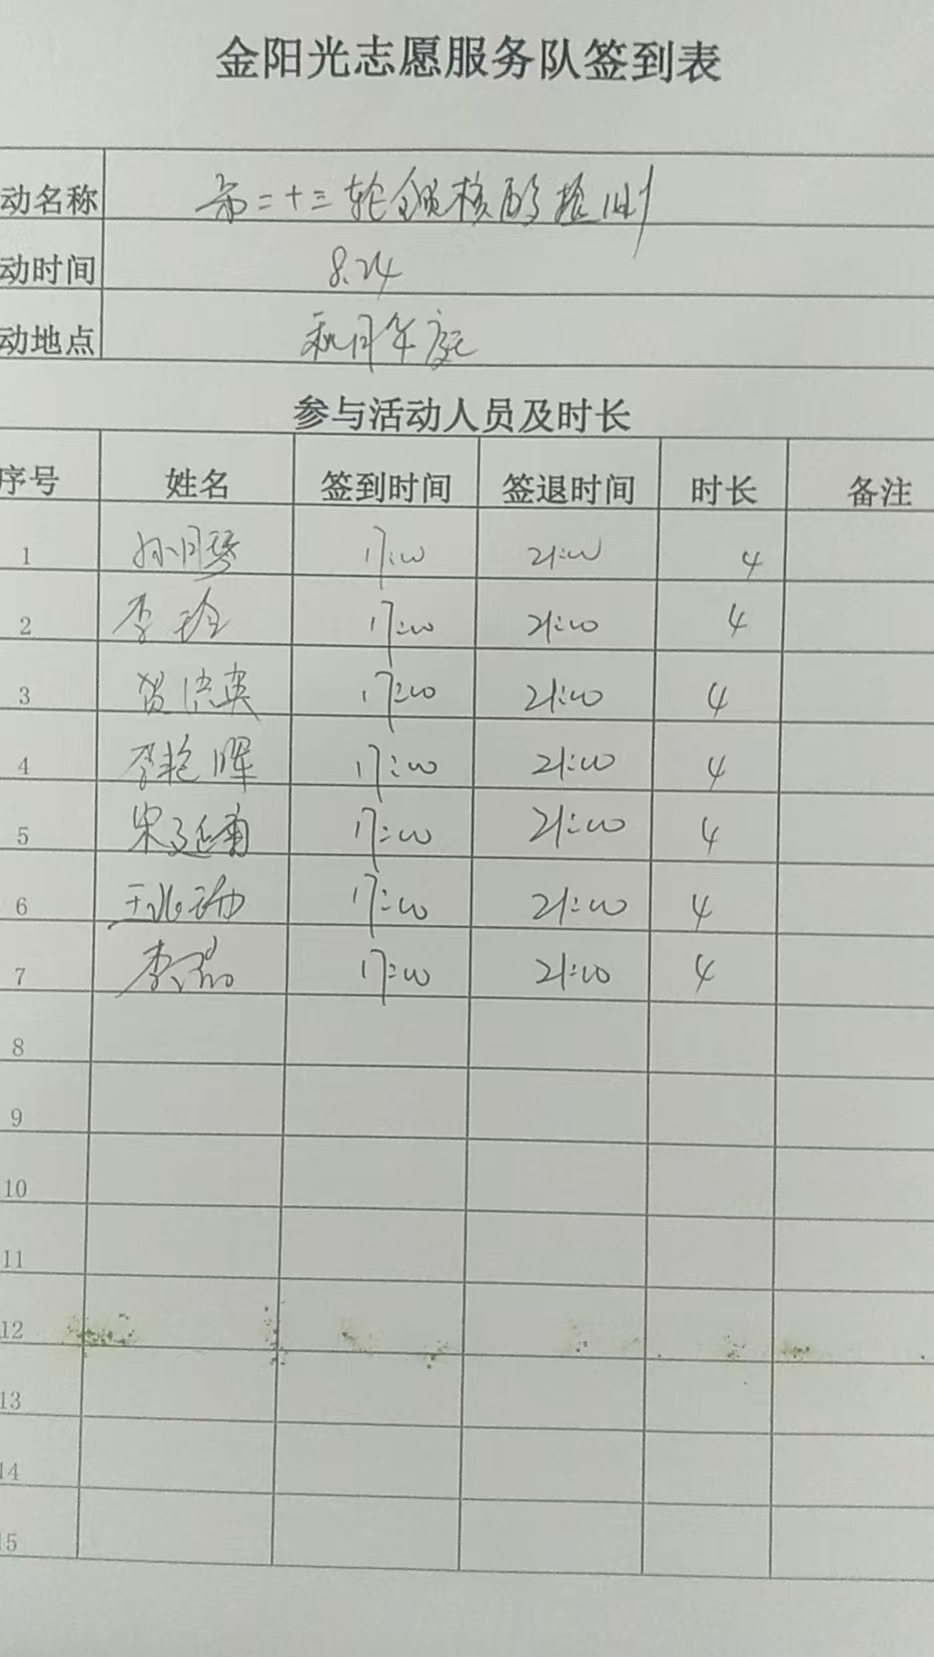 金阳光志愿服务队签到表
动名称 第二十三轮全员核酸检测
动时间 8.24
动地点 秋月华庭
参与活动人员及时长
序号 姓名 签到时间 签退时间 时长 备注
1 孙月琴 17:00 21:00 4
2 李玲 17:00 21:00 4
3 贺洪英 17:00 21:00 4
4 李艳晖 17:00 21:00 4
5 宋延 17:00 21:00 4
6 王 17:00 21:00 4
7 李 17:00 21:00 4
8
9
10
11
12
13
14
15